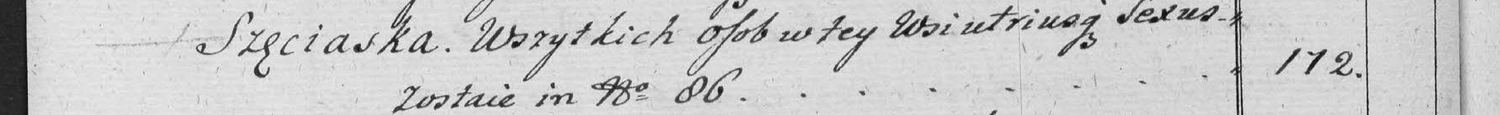 Szęciaska. Wszytkich osob w tey Wsi utriusq Sexus
zostaie in No 86 . . . . . . . 172.